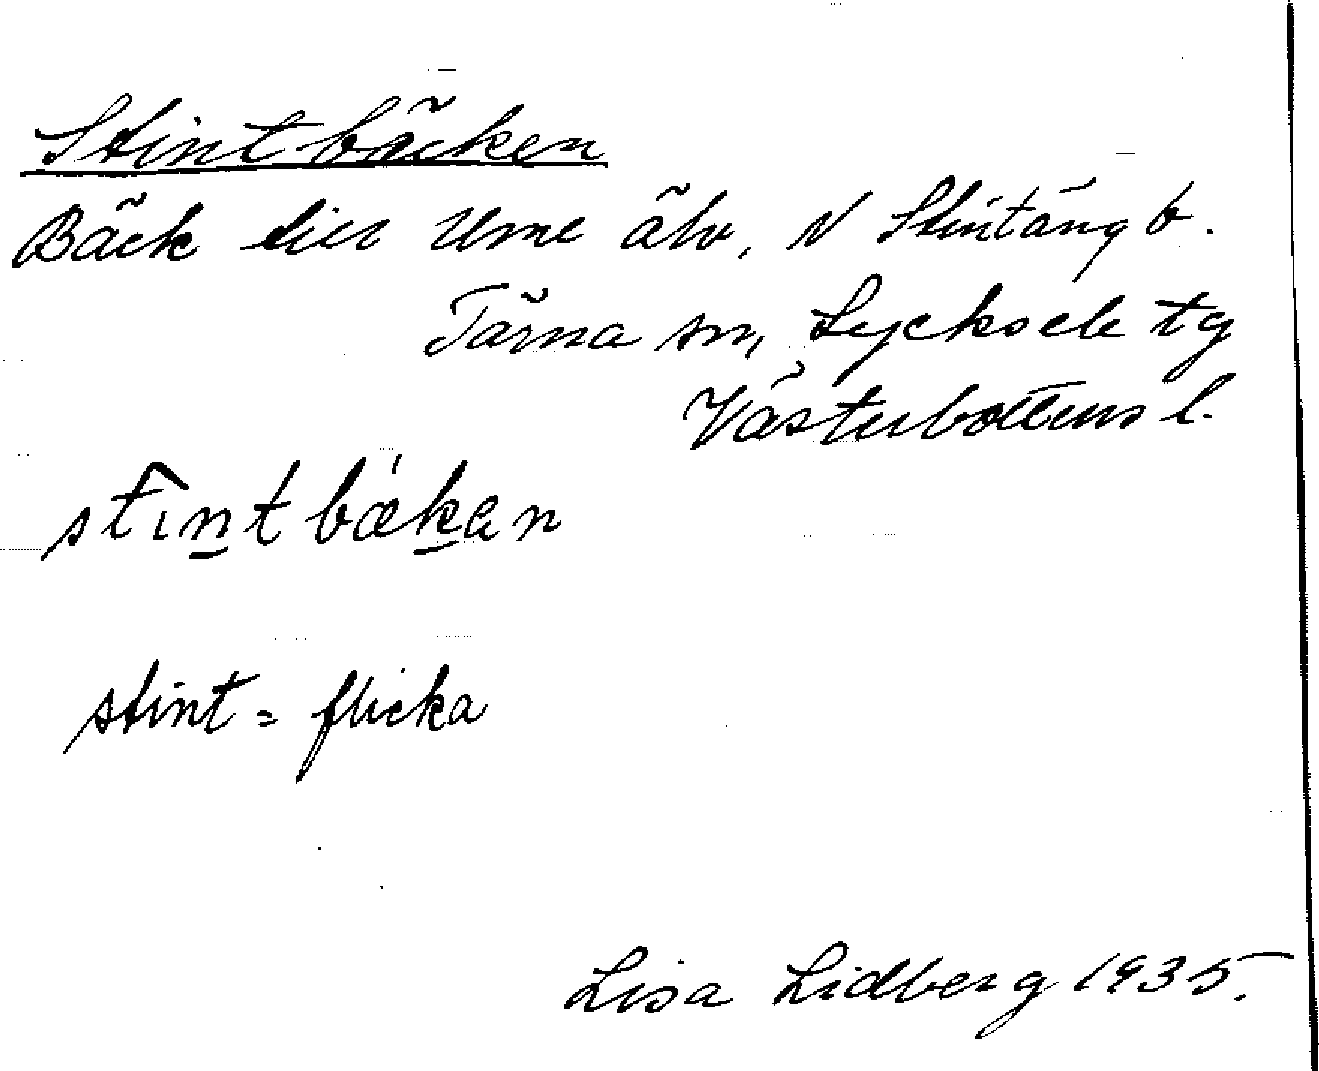 Stintbäcken
Bäck till Ume älv, N Stintäng b.
Tärna sn, Lycksele tg
Västerbottens l.
stin̠tbæ'k̠an
stint = flicka
Lisa Lidberg 1935.